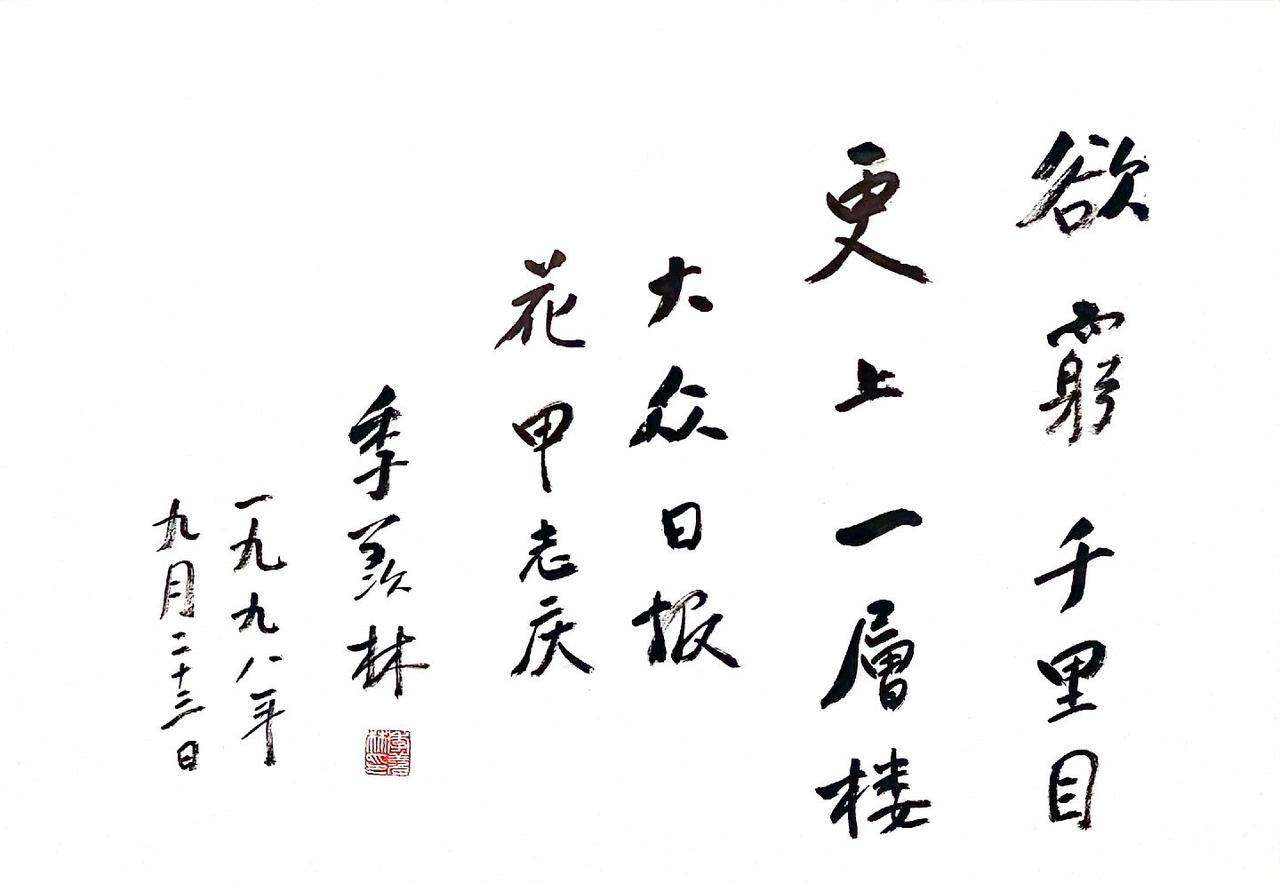 欲窮千里目
更上一層楼
大众日报
花甲志庆
季羡林
一九九八年
九月二十三日
季羡林印